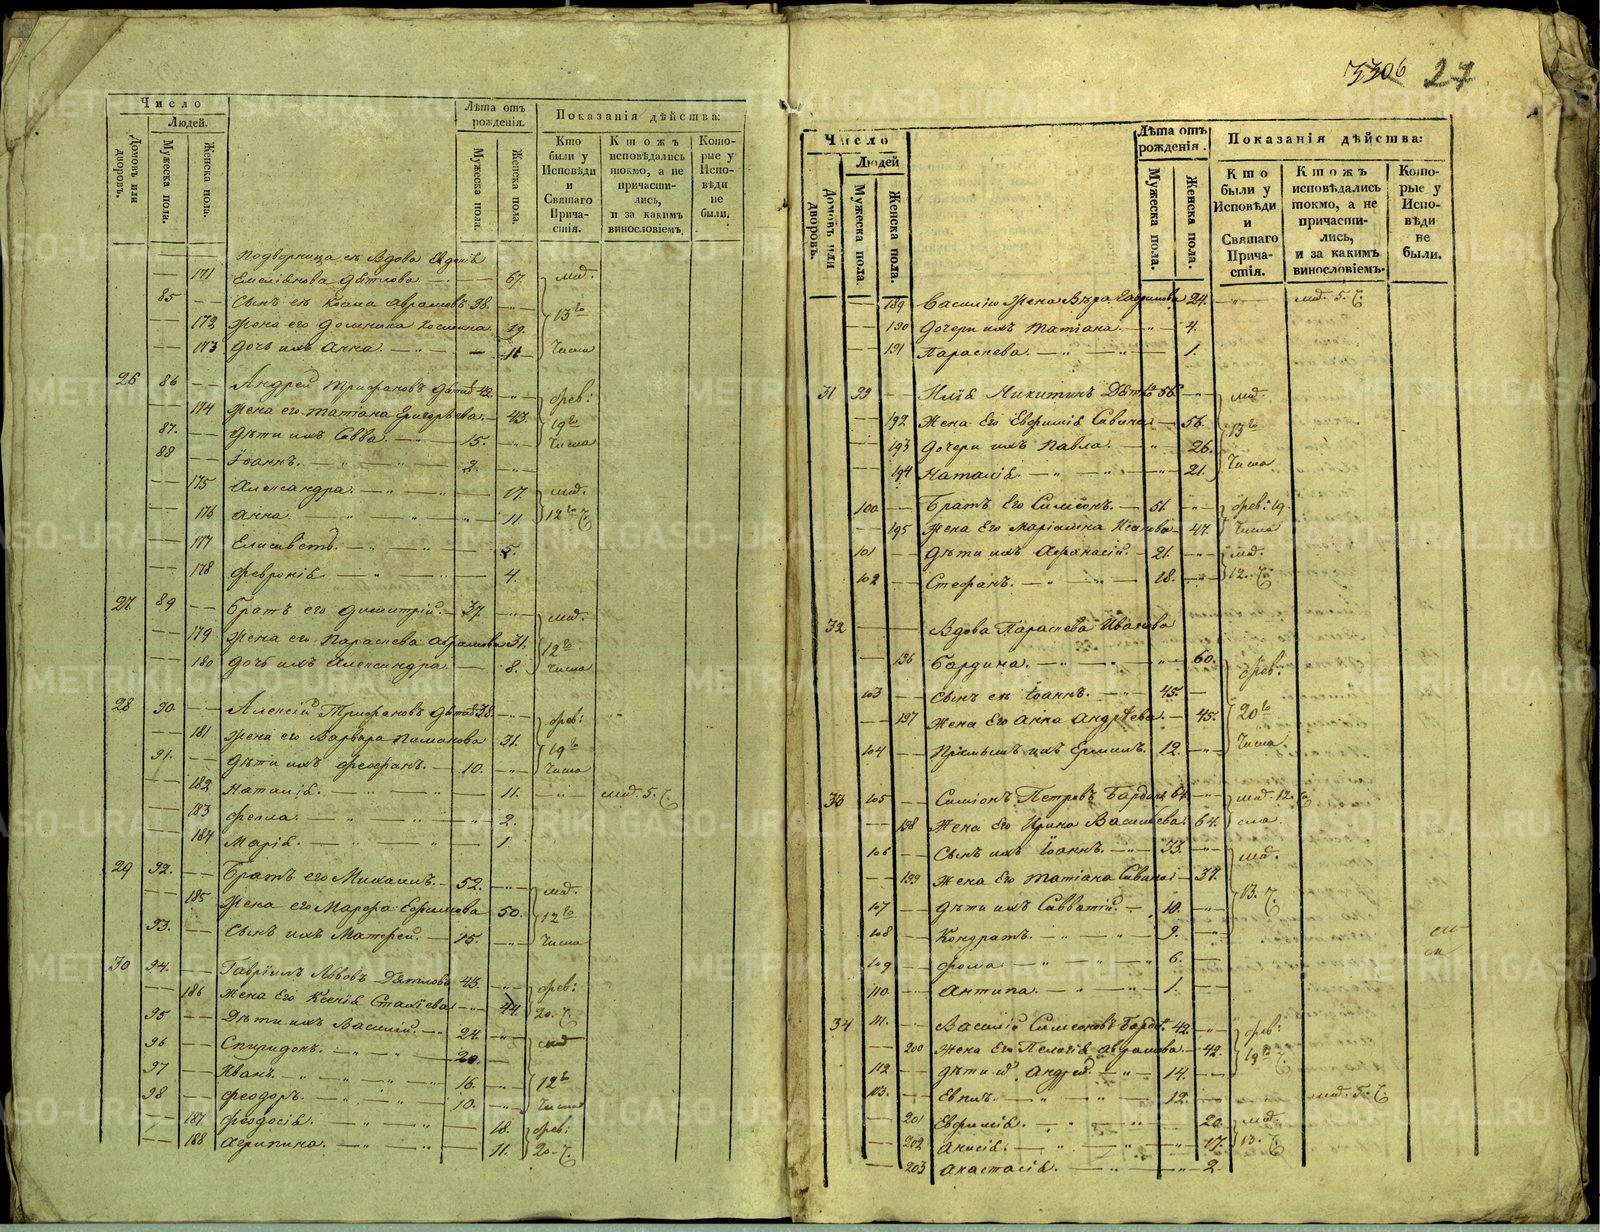 3306 27
Число
Людей.
Домовъ или дворовъ.
Мужеска пола.
Женска пола.
Лѣта отъ рожденія.
Мужеска пола.
Женска пола.
Показанія дѣйства:
Кто были у Исповѣди и Святаго Причастія.
Ктожъ исповѣдались токмо, а не причастились, и за какимъ винословіемъ.
Которые у Исповѣди не были.
171 Емеліянова Дѣтлова — 67. мар.
85 — Сынъ ея Косма Аврамовъ 38. — 13го
172 Жена его Домника Космина 39.
173 Дочь ихъ Анна. — 11. Числа
26 86 — Андрей Трифановъ Дѣтло 42 — фев:
174 Жена его Татіана Григорьева. — 43. 19го
87. — Дѣти ихъ Савва. — 15. — Числа
88 — Іоаннъ. — 2. —
175 Александра. — 17. мар.
176 Анна. — 11. 12го Ч.
177 Елисаветъ. — 5.
178 Февронія — 4.
27 89 — Братъ его Димитрій. — 37. — мар.
179 Жена его Параскева Аврамова 31. 12го
180 Дочь ихъ Александра. — 8. Числа
28 90 — Алексій Трифановъ Дѣтло 38. — фев:
181 Жена его Варвара Пиманова 31. 19го
91. — Дѣти ихъ Феофанъ. — 10. — Числа
182 Наталія. — 11. — мар. 5. Ч.
183 Фекла. — 2.
184 Марія. — 1.
29 92. — Братъ его Михаилъ. — 52. — мар.
185 Жена его Марфа Ефимова 50. 12го
93. — Сынъ ихъ Матфей. — 15. — Числа
30 94. — Гавріилъ Львовъ Дѣтловъ 45. — фев:
186 Жена Его Ксенія — 44. 20. Ч.
95 — Дѣти ихъ Василій. — 24. — мар
96 — Спиридонъ. — 20. —
97 — Иванъ. — 16. — 12го
98 — Феодоръ. — 10. — Числа
187 Феодосія. — 18. фев:
188 Агрипина. — 11. 20. Ч.
Число
Людей
Домовъ или дворовъ.
Мужеска пола.
Женска пола.
Лѣта отъ рожденія.
Мужеска пола.
Женска пола.
Показанія дѣйства:
Кто были у Исповѣди и Святаго Причастія.
Ктожъ исповѣдались токмо, а не причастились, и за какимъ винословіемъ.
Которые у Исповѣди не были.
189 Василію Жена Вѣра Гаврилова 24. — мар. 5. Ч.
190 Дочери ихъ Татіана. — 4.
191 Параскева. — 1.
31 99 — Илія Никитинъ Дѣтло 56. — мар.
192 Жена Его Евфимія Савина — 56. 13го
193 Дочери ихъ Павла. — 26.
194 Наталія. — 21. Числа
100 — Братъ Его Симеонъ. — 51. — фев: 19.
195 Жена Его Маріамна — 47. Числа
101 — Дѣти ихъ Афанасій. — 21. — мар.
102 — Стефанъ. — 18. — 12. Ч.
32 — Вдова Параскева Иванова
196 Бардина. — 60. фев:
103 — Сынъ ея Іоаннъ. — 45. —
197 Жена Его Анна Андрѣева. — 45. 20го
104 — 12. — Числа
33 105 — Симіонъ Петровъ Бардинъ 64. — мар. 12.
198 Жена Его Ирина Васильева. 64.
106 — Сынъ ихъ Іоаннъ. — 33. — мар.
199 Жена Его Татіана Савина — 37. 13. Ч.
107 — Дѣти ихъ Савватій. — 10. —
108 — Кондратъ. — 9. —
109 — Фома. — 6. —
110. — Антипа. — 1. —
34 111. — Василій Симеоновъ Бард. 42. — фев:
200 Жена Его Пелагія Аврамова. — 42. 19го Ч.
112 — Дѣти ихъ Андрей. — 14. —
113. — 12. — мар. 5. Ч.
201 Евфимія. — 20. мар.
202 Анисія. — 17. 13. Ч.
203 Анастасія. — 2
METRIKI.GASO-URAL.RU